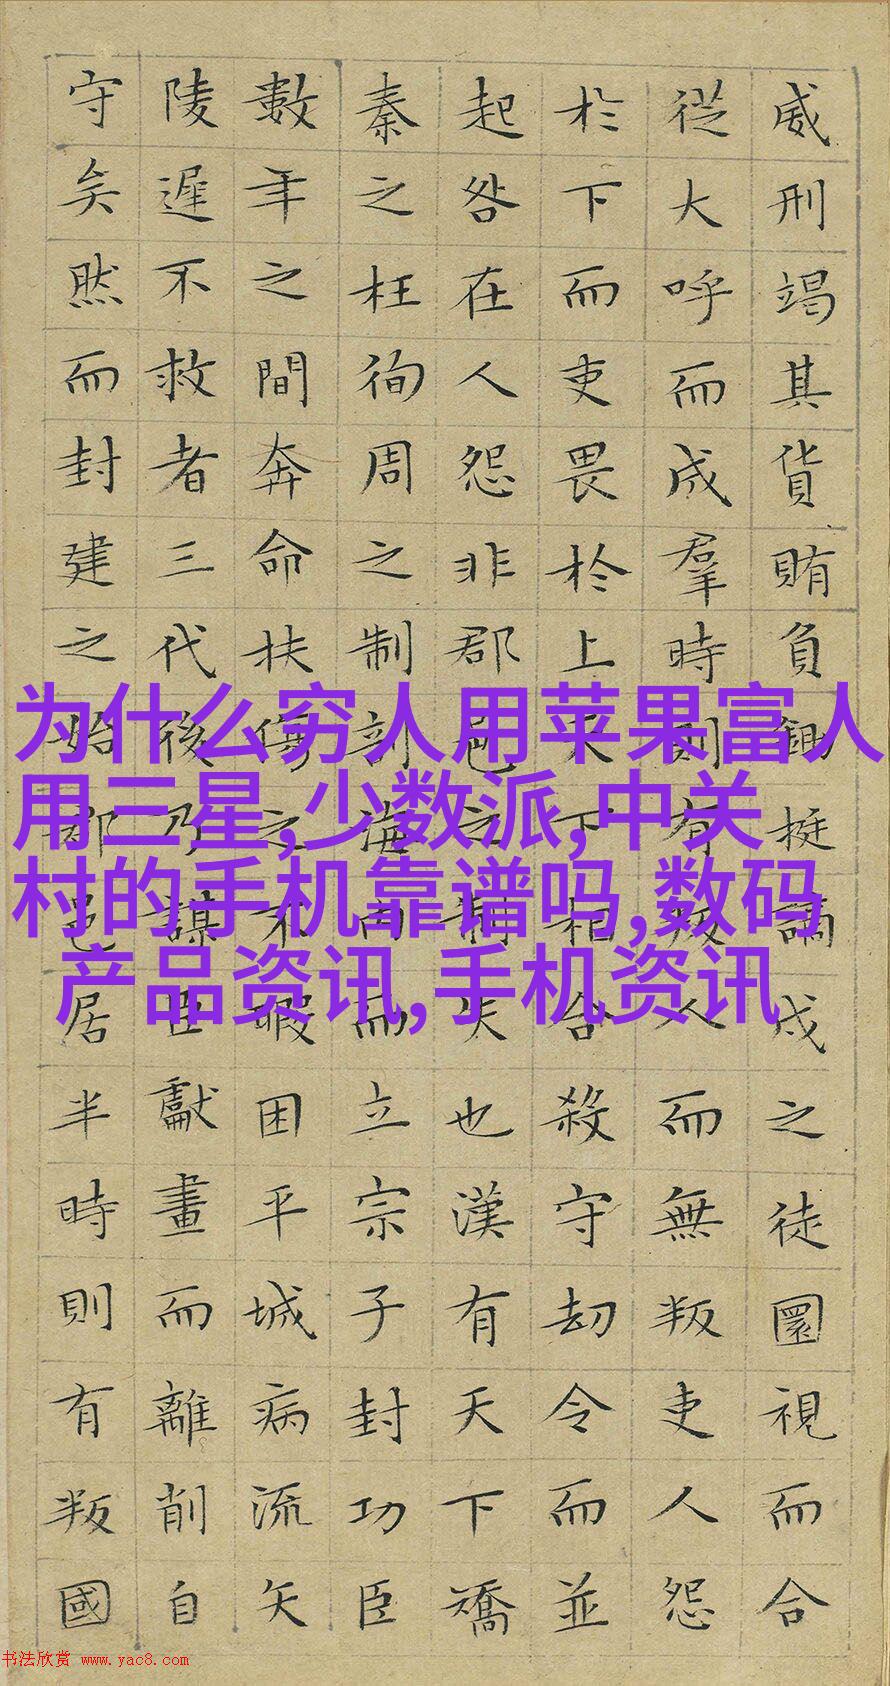 威刑竭其貨賄負鋤梃謫戍之徒圜視而合
從大呼而成羣時則有叛人而無叛吏人怨
於下而吏畏於上天下相合殺守刼令而並
起咎在人怨非郡邑之制失也漢有天下矯
秦之枉徇周之制剖海內而立宗子封功臣
數年之間奔命扶傷之不暇困平城病流矢
陵遲不救者三代後乃謀臣獻畫而離削自
守矣然而封建之始郡邑居半時則有叛國
为什么穷人用苹果富人
用三星,少数派,中关
村的手机靠谱吗,数码
产品资讯,手机资讯
书法欣赏 www.yac8.com